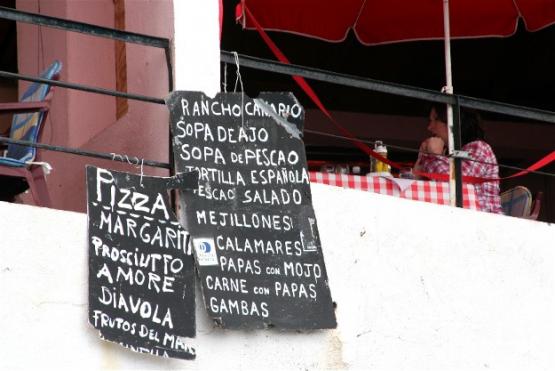 RANCHO CANARIO
SOPA DE AJO
SOPA DE PESCAO
TORTILLA ESPAÑOLA
PESCAO SALADO
MEJILLONES
CALAMARES
PAPAS CON MOJO
CARNE CON PAPAS
GAMBAS
PIZZA
MARGARIT
PROSCIUTTO
AMORE
DIAVOLA
FRUTOS DEL MAR